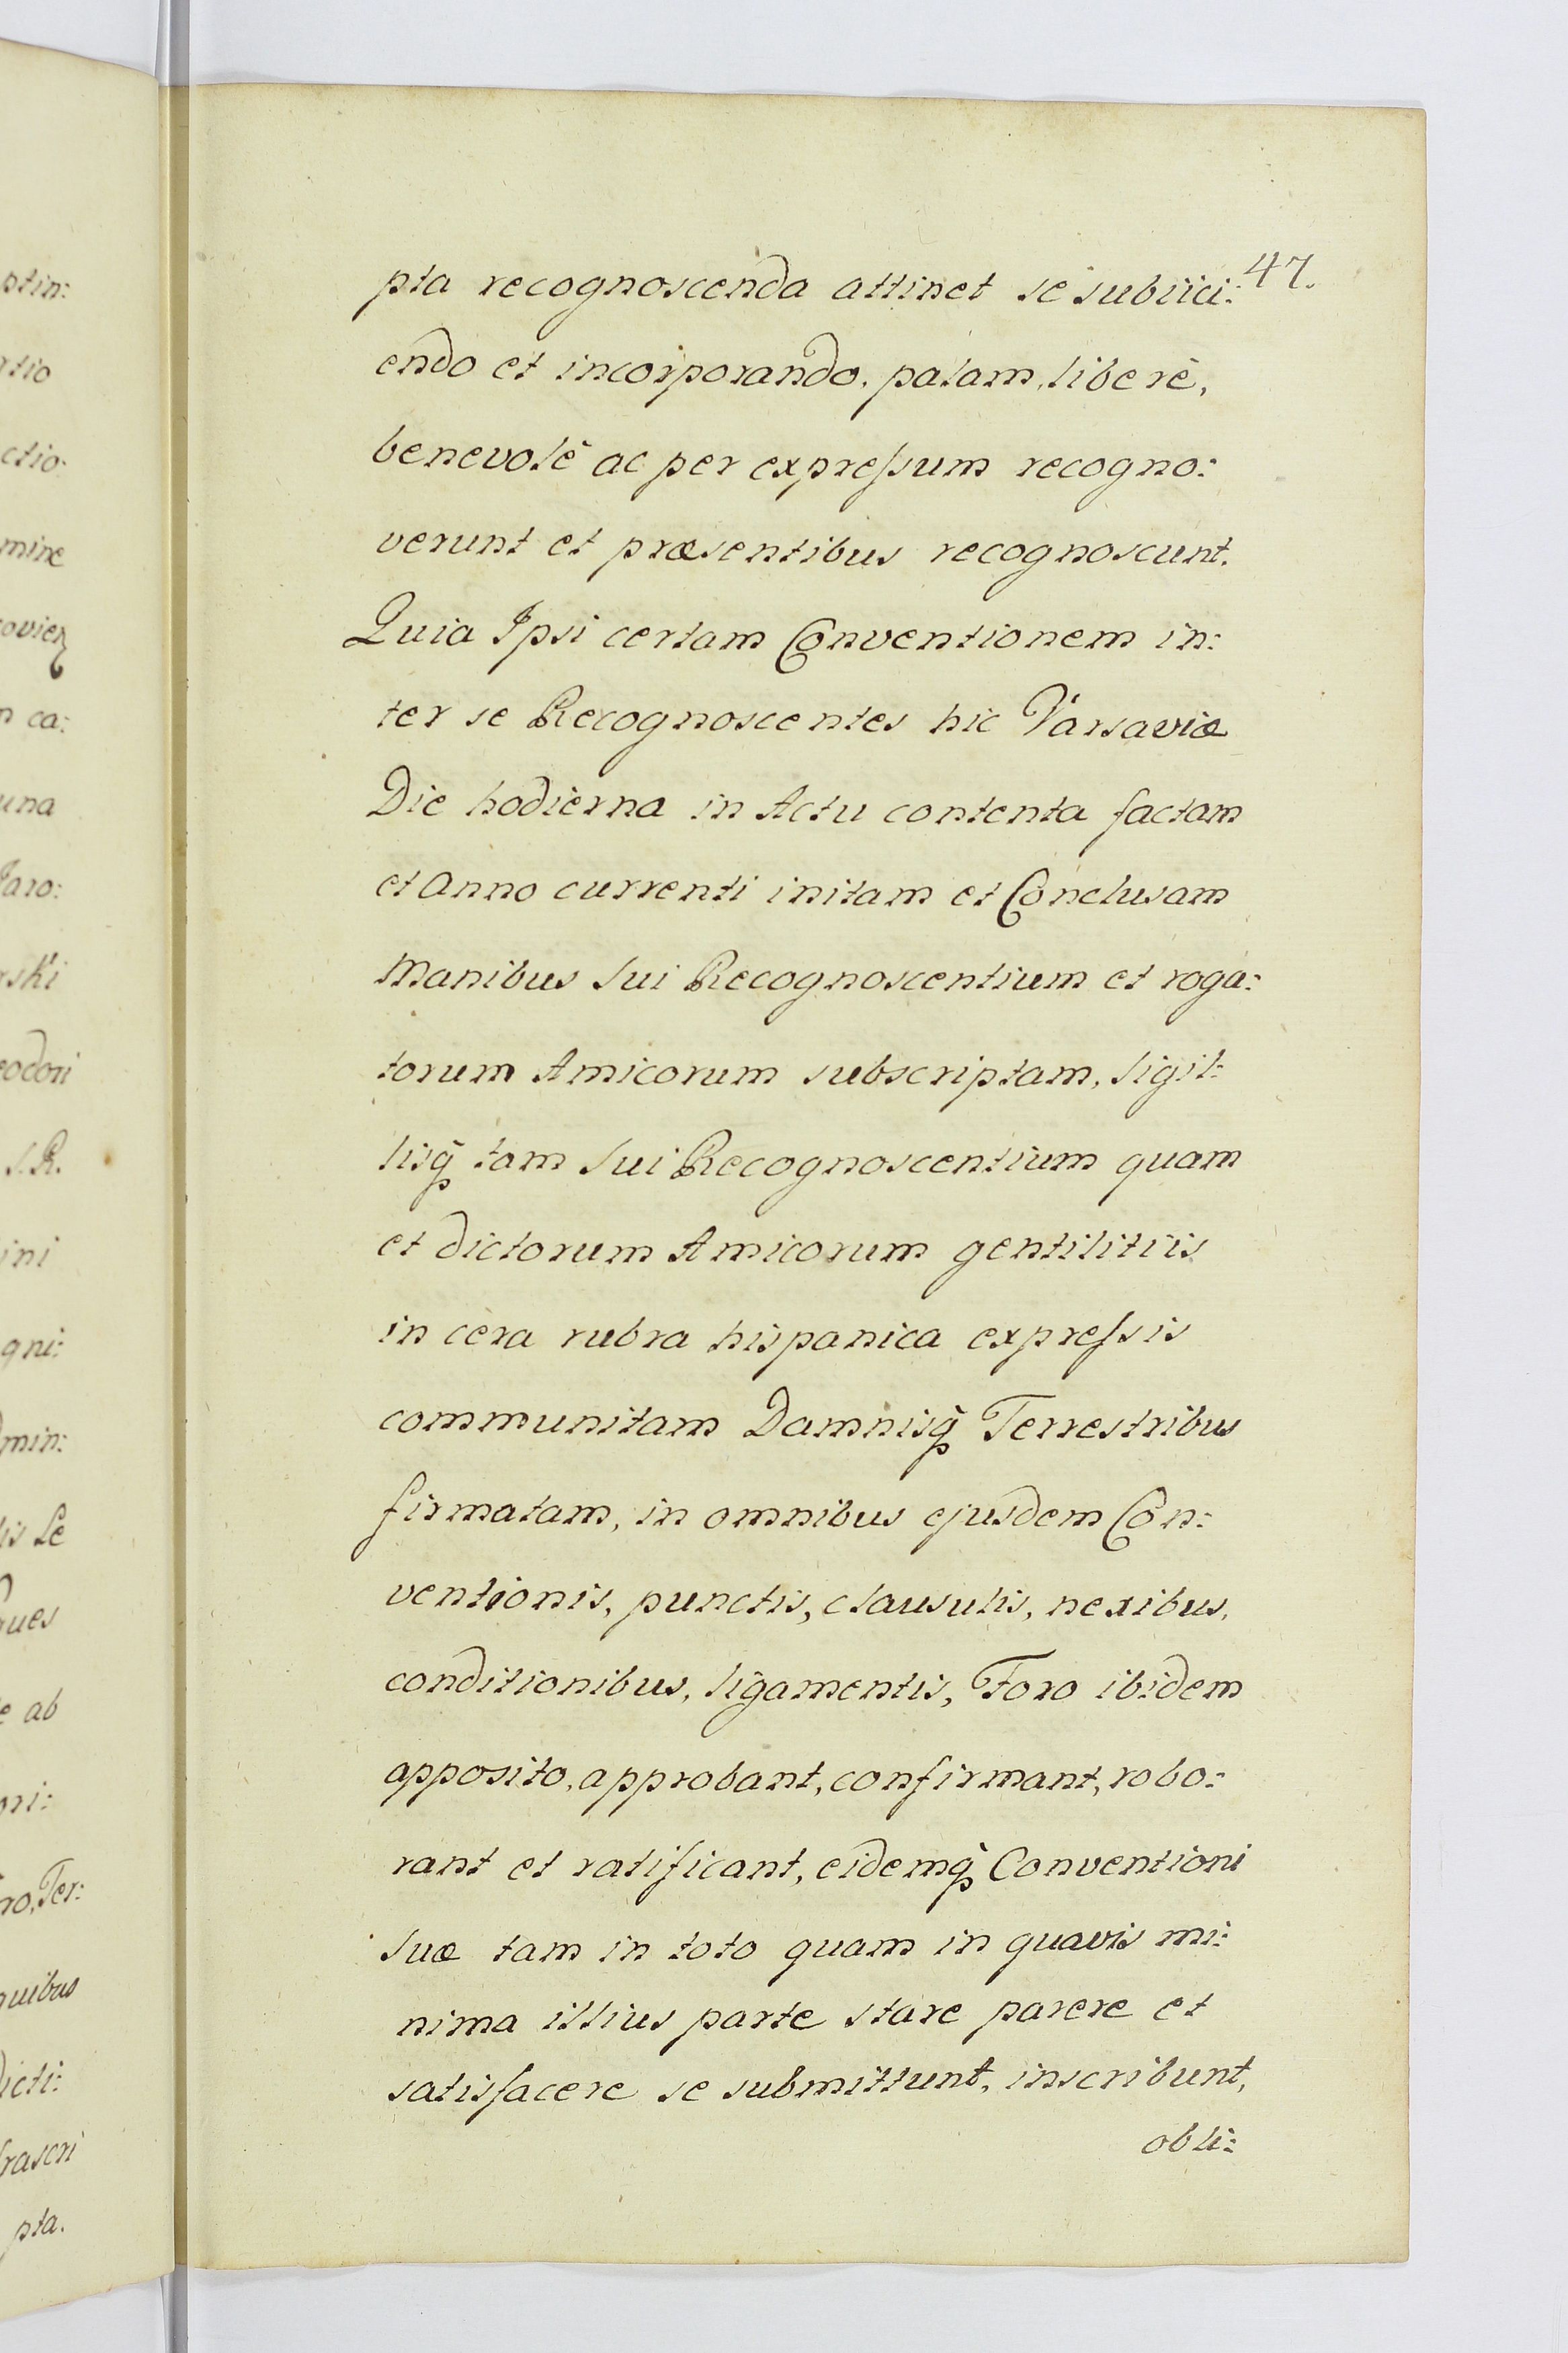 47.
pta recognoscenda attinet se subiici:
endo et incorporando, palam, liberè,
benevolè ac per expreſsum recogno:
verunt et præsentibus recognoscunt.
Quia Ipsi certam Conventionem in:
ter se Recognoscentes hic Varsaviæ
Die hodierna in Actu contenta factam
et Anno currenti initam et Conclusam
Manibus Sui Recognoscentium et roga:
torum Amicorum subscriptam, Sigil:
lisq̃ tam Sui Recognoscentium quam
et dictorum Amicorum gentilitiis
in cera rubra hispanica expreſsis
communitam Damnisq̃ Terrestribus
firmatam, in omnibus ejusdem Con:
ventionis, punctis, clausulis, nexibus,
conditionibus, ligamentis, Foro ibidem
apposito, approbant, confirmant, robo:
rant et ratificant, eidemq̃ Conventioni
Suæ tam in toto quam in quavis mi:
nima illius parte stare parere et
satisfacere se submittunt, inscribunt,
obli:
ptin:
ctio
mine
ca:
una
Jaro:
rski
eodori
S.R.
ini
gni:
min:
lis Le
ques
ab
ori:
ro, Ter:
quibus
dicti:
frascri
pta.